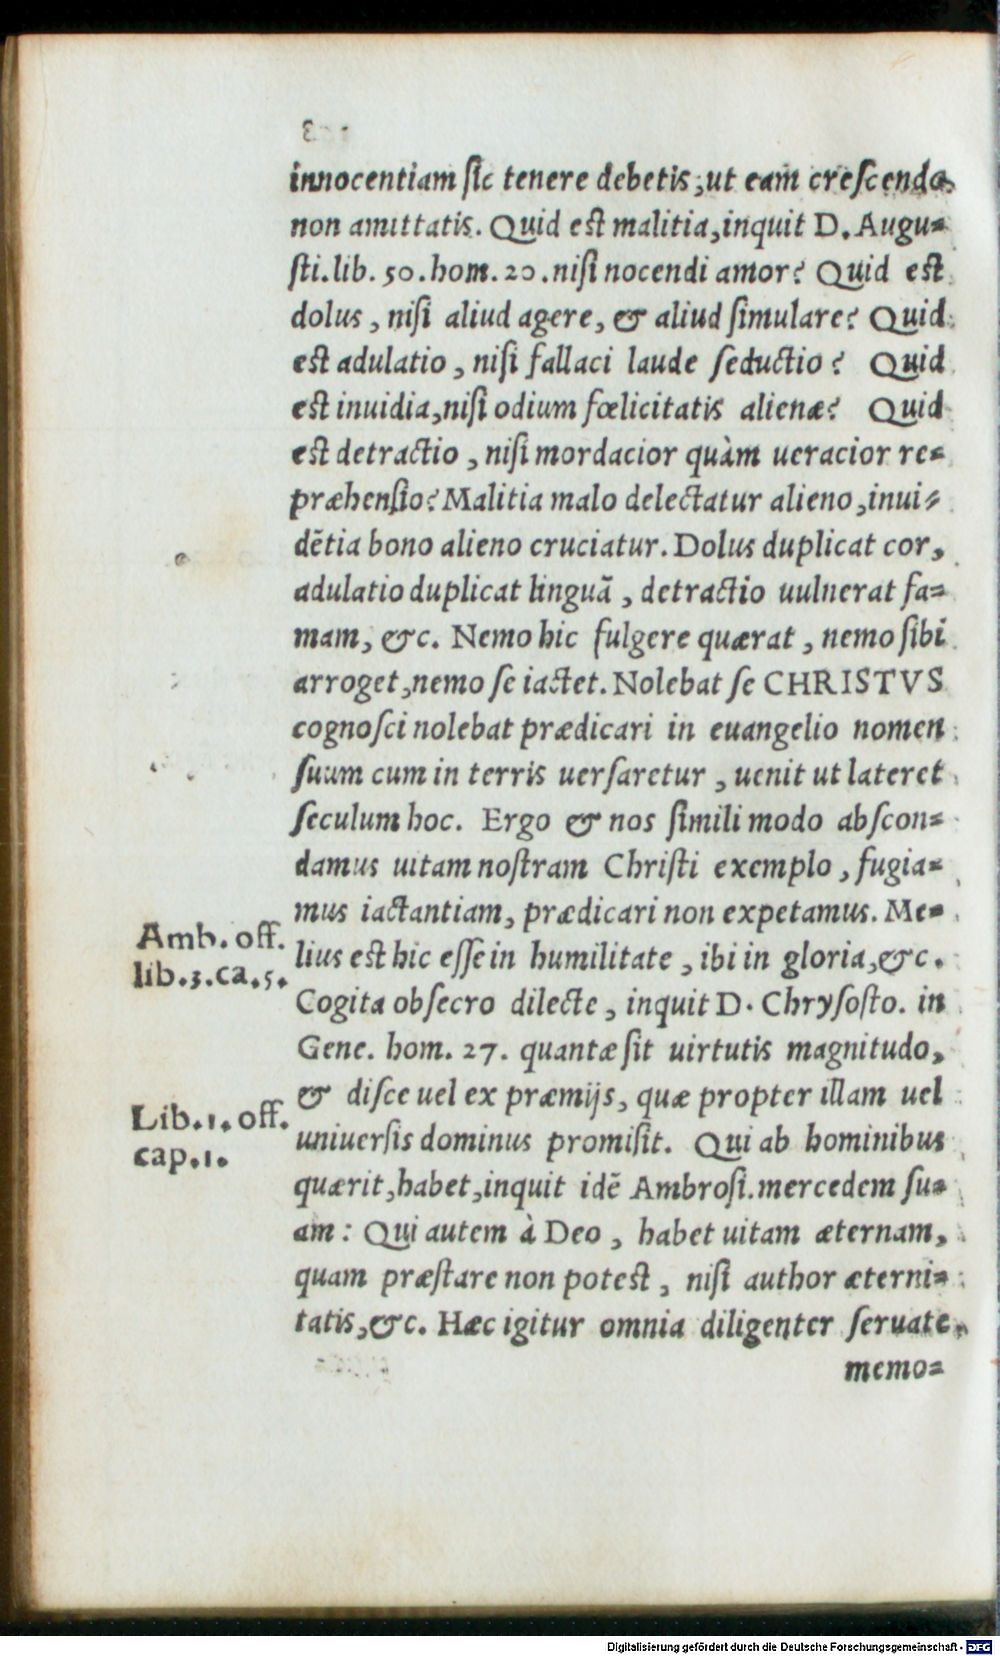 innocentiam sic tenere debetis, ut eam crescendo
non amittatis. Quid est malitia, inquit D. Augu=
sti. lib. 50. hom. 20. nisi nocendi amor? Quid est
dolus, nisi aliud agere, & aliud simulare? Quid
est adulatio, nisi fallaci laude seductio? Quid
est inuidia, nisi odium fœlicitatis alienæ? Quid
est detractio, nisi mordacior quàm ueracior re=
præhensio? Malitia malo delectatur alieno, inui=
dẽtia bono alieno cruciatur. Dolus duplicat cor,
adulatio duplicat linguã, detractio uulnerat fa=
mam, &c. Nemo hic fulgere quærat, nemo sibi
arroget, nemo se iactet. Nolebat se CHRISTVS
cognosci nolebat prædicari in euangelio nomen
suum cum in terris uersaretur, uenit ut lateret
seculum hoc. Ergo & nos simili modo abscon=
damus uitam nostram Christi exemplo, fugia=
mus iactantiam, prædicari non expetamus. Me=
Amb. off.
lib. 3. ca. 5.
lius est hic esse in humilitate, ibi in gloria, &c.
Cogita obsecro dilecte, inquit D. Chrysosto. in
Gene. hom. 27. quantæ sit uirtutis magnitudo,
& disce uel ex præmijs, quæ propter illam uel
Lib. 1. off.
cap. 1.
uniuersis dominus promisit. Qui ab hominibus
quærit, habet, inquit idẽ Ambrosi. mercedem su=
am: Qui autem à Deo, habet uitam æternam,
quam præstare non potest, nisi author æterni=
tatis, &c. Hæc igitur omnia diligenter seruate,
memo=
Digitalisierung gefördert durch die Deutsche Forschungsgemeinschaft - DFG